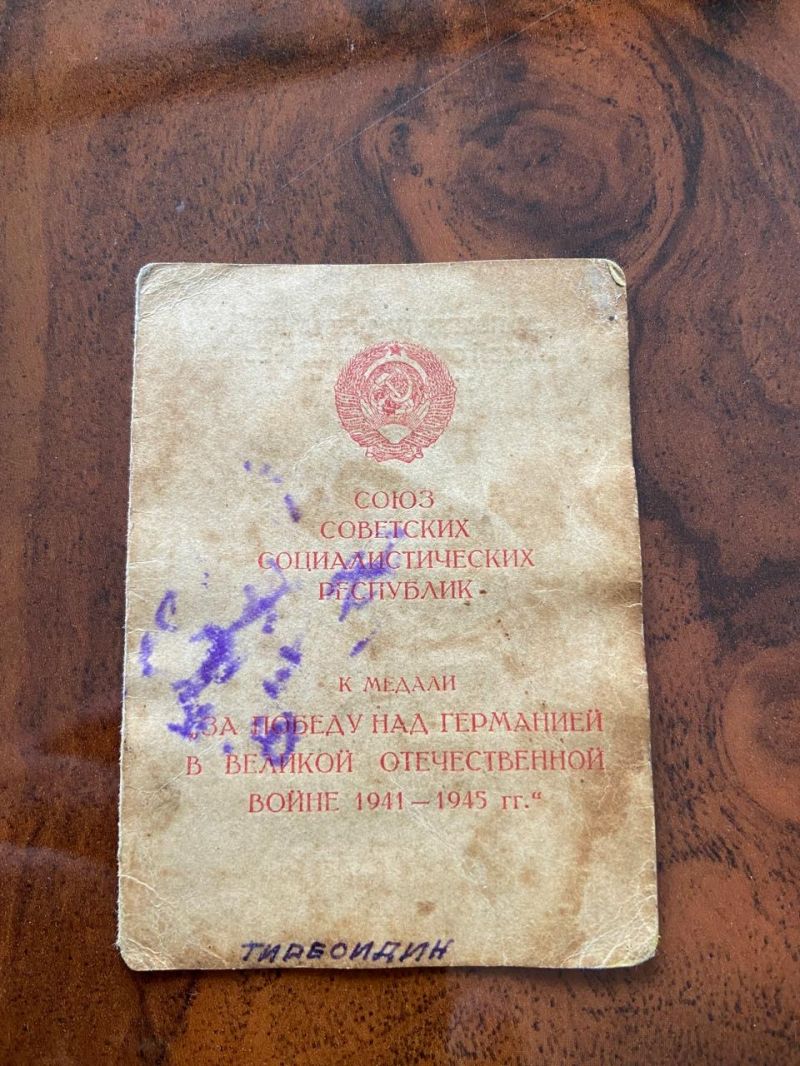 СОЮЗ
СОВЕТСКИХ
СОЦИАЛИСТИЧЕСКИХ
РЕСПУБЛИК
К МЕДАЛИ
„ЗА ПОБЕДУ НАД ГЕРМАНИЕЙ
В ВЕЛИКОЙ ОТЕЧЕСТВЕННОЙ
ВОЙНЕ 1941—1945 гг.“